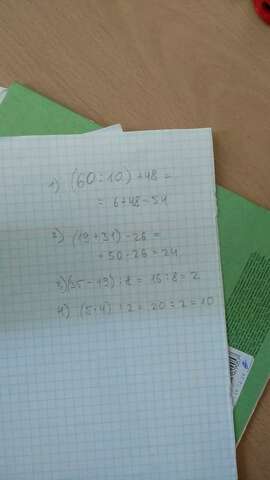 1) (60:10) +48 =
= 6+48=54
2) (19+31) - 26 =
= 50-26=24
3) (35-19) : 8 = 16:8=2
4) (5·4) : 2 = 20:2=10